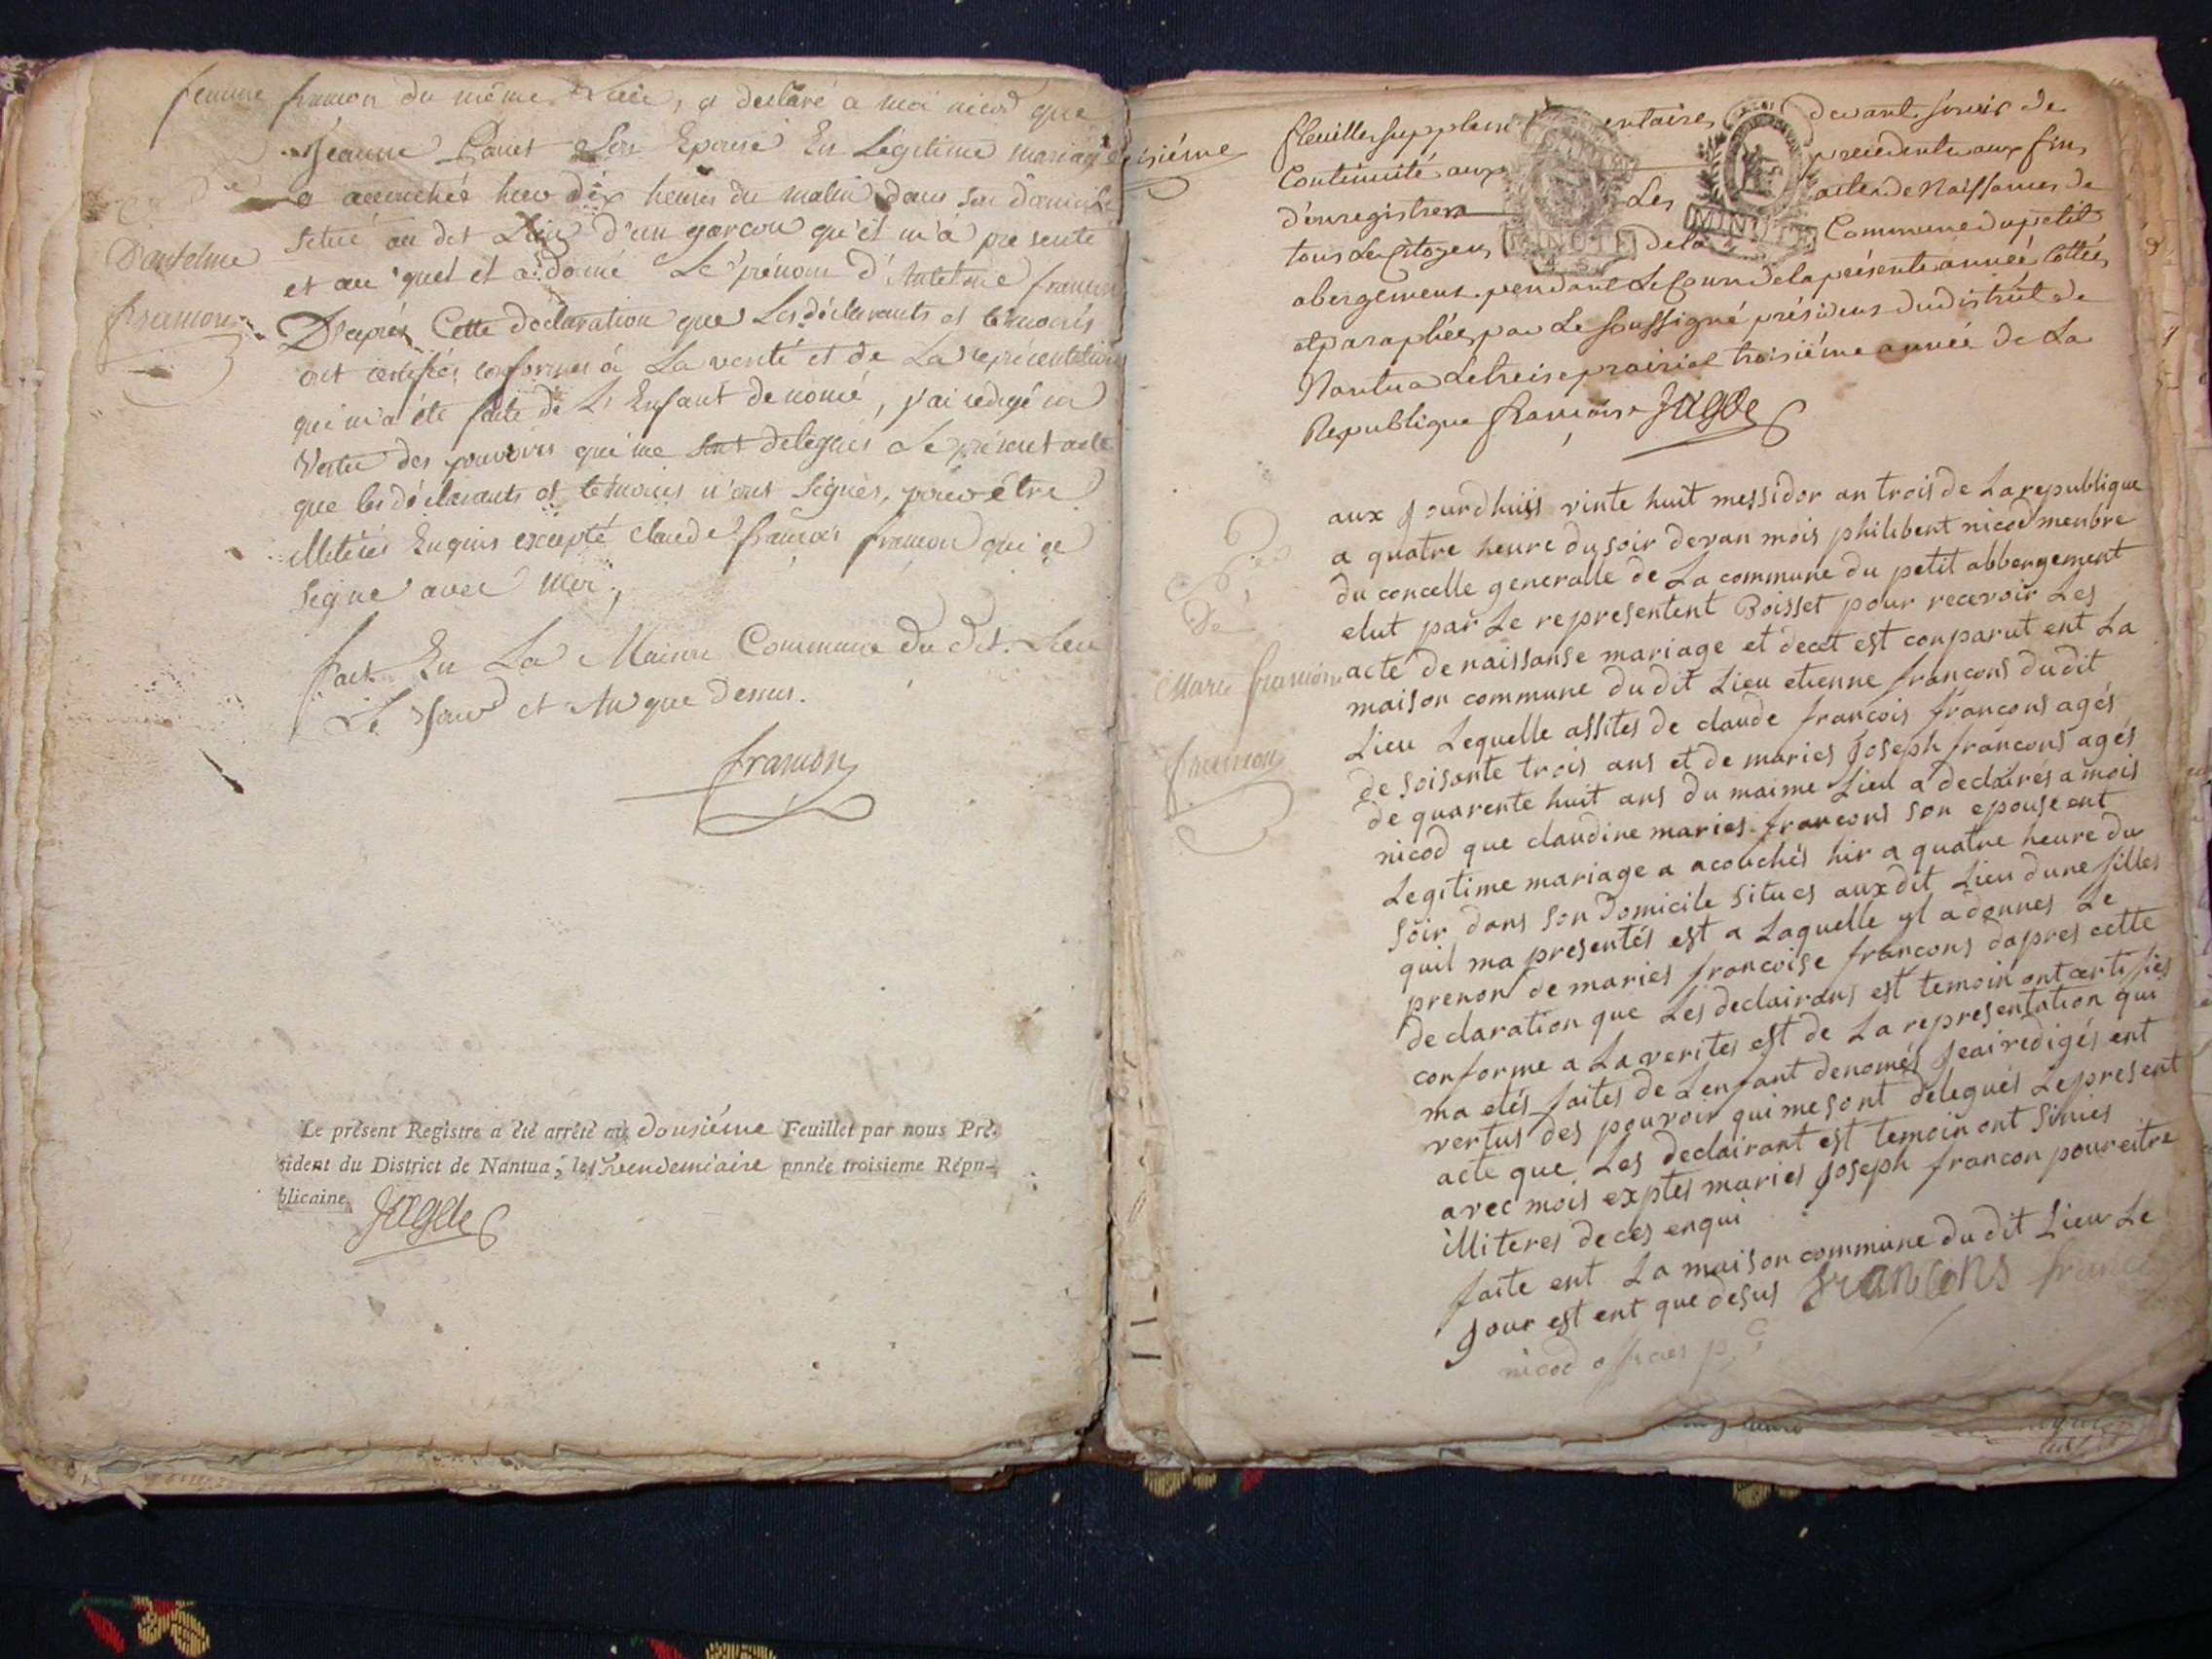 femme francon du même Lieu, a declaré a moi nicod que
Jeanne son Epouse En Légitime mariage
a accouchée hier dix heures du matin dans son domicile
situé au dit Lieu d'un garcon qu'il m'a presenté
et au quel il a donné Le prénom d'Antelme francon
D'antelme
francon
D'après Cette declaration que Les déclarants et temoins
ont certifiée conforme à La verité et de La representation
qui m'a été faite de L'Enfant denomé, j'ai redigé en
Vertu des pouvoirs qui me sont delegués Le présent acte
que les déclarants et temoins n'ont signés, pour être
illiterés Enquis excepté claude françois francon qui a
signé avec moi.
fait En La Maison Commune du dit Lieu
Le Jour et An que dessus.
francon
Le présent Registre a été arrêté au dousiéme Feuillet par nous Pré-
sident du District de Nantua, le vendemiaire année troisieme Répu-
blicaine. Jagot
fleuillet supplementaires devant servir de
Continuité aux precedents aux fins
d'enregistrer Les actes de Naissances de
tous Les Citoyens de la Commune du petit
MINUTE
MINUTE
abergement pendant Le Cours de la présente année Cottés
et paraphées par Le Soussigné président du district de
Nantua Le treise prairial troisiéme année de La
Republique françoise Jagot
aux jourdhuis vinte huit messidor an trois de La republique
a quatre heure du soir devan mois philibent nicod menbre
du concelle generalle de La commune du petit abbergement
elut par Le representent Boisset pour recevoir Les
acte de naissanse mariage et decet est conparut ent La
maison commune du dit Lieu etienne francons du dit
Lieu Lequelle assites de claude francois francons agés
de soisante trois ans et de maries Joseph francons agés
de quarente huit ans du maime Lieu a declairés a mois
nicod que claudine maries francons son epouse ent
Legitime mariage a acouchés hir a quatre heure du
soir dans son domicile situes aux dit Lieu dune filles
quil ma presentés est a Laquelle yl a donnes Le
prenon de maries francoise francons dapres cette
declaration que Les declairans est temoin ont certifies
conforme a La verites est de La representation qui
ma etés faites de Lenfant denomés jeai redigés ent
vertus des pouvoir qui me sont delegués Le present
acte que Les declairant est temoin ont sinies
avec mois exptes maries Joseph francon pour eitre
illiteres de ces enqui
faite ent La maison commune du dit Lieu Le
jour est ent que desus francons
nicod
Marie francoise
francon